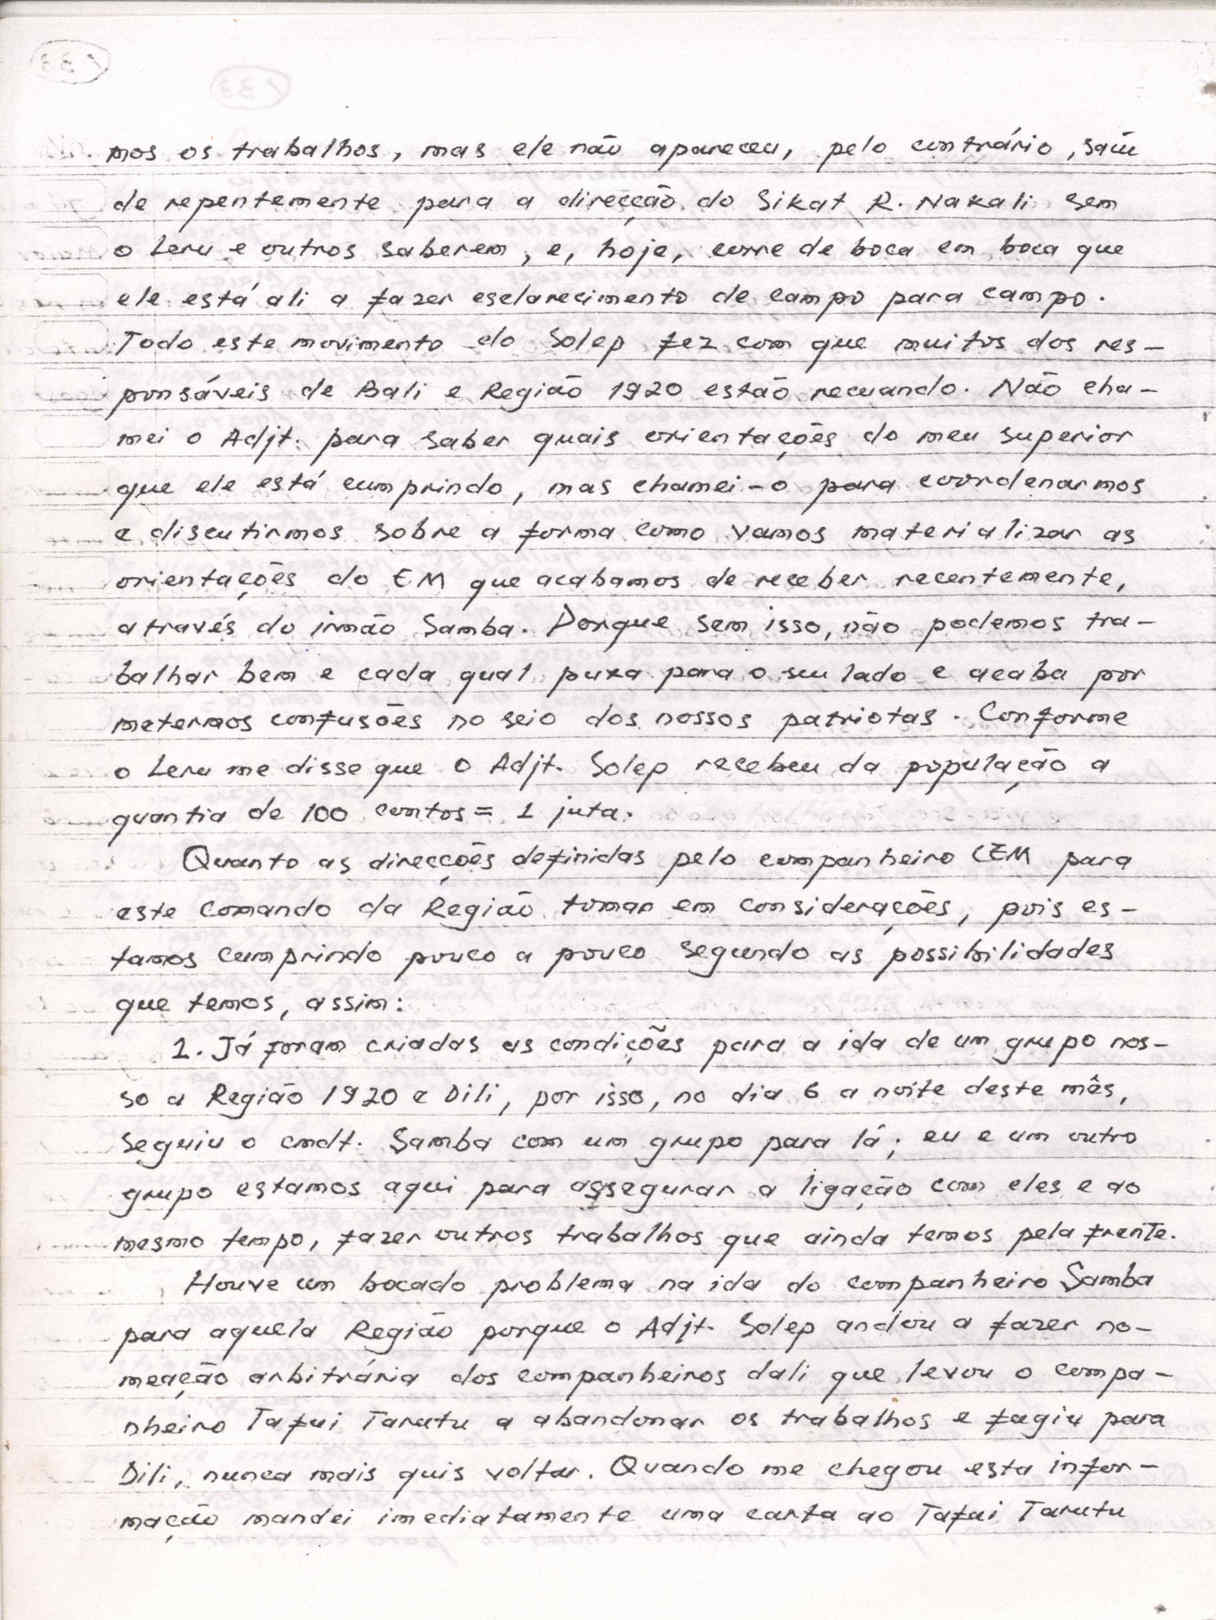 mos os trabalhos, mas ele não apareceu, pelo contrário, saíu
de repentemente para a direcção do Sikat R. Nakali sem
o Leru e outros saberem, e, hoje, corre de boca em boca que
ele está ali a fazer esclarecimento de campo para campo.
Todo este movimento do Solep fez com que muitos dos res-
ponsáveis de Bali e Região 1920 estão recuando. Não cha-
mei o Adjt. para saber quais orientações do meu superior
que ele está cumprindo, mas chamei-o para coordenarmos
e discutirmos sobre a forma como vamos materializar as
orientações do EM que acabamos de receber recentemente,
através do irmão Samba. Porque sem isso, não podemos tra-
balhar bem e cada qual puxa para o seu lado e acaba por
metermos confusões no seio dos nossos patriotas. Conforme
o Leru me disse que o Adjt. Solep recebeu da população a
quantia de 100 contos = 1 juta.
Quanto as direcções definidas pelo companheiro CEM para
este Comando da Região tomar em considerações, pois es-
tamos cumprindo pouco a pouco segundo as possibilidades
que temos, assim:
1. Já foram criadas as condições para a ida de um grupo nos-
so a Região 1920 e Dili, por isso, no dia 6 a noite deste mês,
seguiu o cmdt. Samba com um grupo para lá; eu e um outro
grupo estamos aqui para assegurar a ligação com eles e ao
mesmo tempo, fazer outros trabalhos que ainda temos pela frente.
Houve um bocado problema na ida do companheiro Samba
para aquela Região porque o Adjt. Solep andou a fazer no-
meação arbitrária dos companheiros dali que levou o compa-
nheiro Tafui Tarutu a abandonar os trabalhos e fugiu para
Dili, nunca mais quis voltar. Quando me chegou esta infor-
mação mandei imediatamente uma carta ao Tafui Tarutu